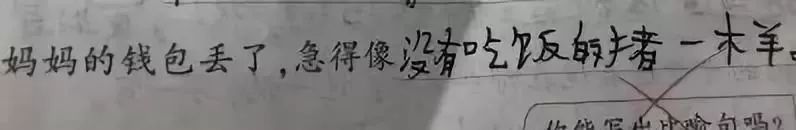 妈妈的钱包丢了,急得像没有吃饭的猪一木羊。
你能写出比喻句吗?